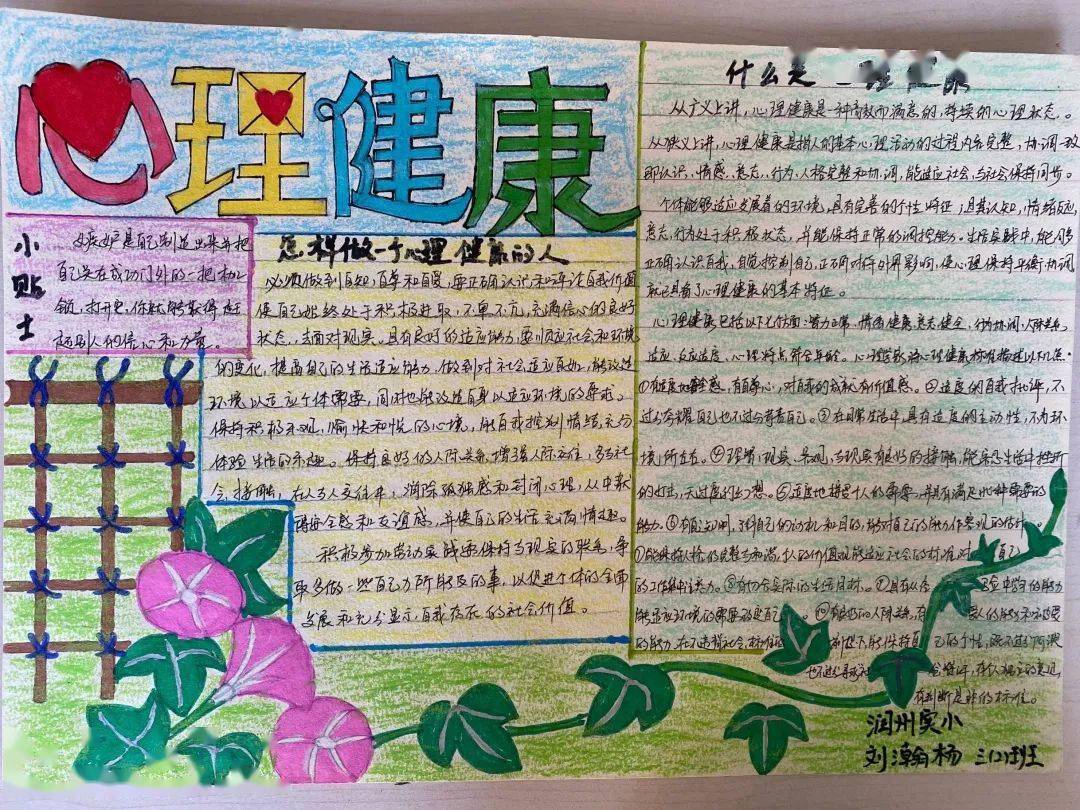 心理健康
小贴士
嫉妒是自己制造出来并把
自己关在成功门外的一把枷
锁,打开它,你就能获得赶
超别人的信心和力量。
怎样做一个心理健康的人
必须做到自知,自尊和自爱,要正确认识和评论自我价值
使自己始终处于积极进取,不卑不亢,充满信心的良好
状态。去面对现实。具有良好的适应能力,要顺应社会和环境
的变化,提高自己的生活适应能力,做到对社会适应良好,能改造
环境以适应个体需要,同时也能改造自身以适应环境的要求。
保持积极乐观,愉快和悦的心境,用自我控制情绪,充分
体验生活的乐趣。保持良好的人际关系,增强人际交往,多与社
会接触,在与人交往中,消除孤独感和封闭心理,从中获
得安全感和友谊感,并使自己的生活充满情趣。
积极参加劳动实践来保持与现实的联系,争
取多做些自己力所能及的事,以促进个体的全面
发展和充分显示自我存在的社会价值。
什么是
从广义上讲,心理健康是一种高效而满意的,持续的心理状态。
从狭义上讲,心理健康是指人的基本心理活动的过程内容完整,协调一致
即认识,情感,意志,行为,人格完整和协调,能适应社会,与社会保持同步。
个体能够适应发展着的环境,具有完善的个性特征;且其认知,情绪反应,
意志,行为处于积极状态,并能保持正常的调控能力。生活实践中,能够
正确认识自我,自觉控制自己,正确对待外界影响,使心理保持平衡协调
就已具备了心理健康的基本特征。
心理健康包括以下七方面:智力正常,情绪健康,意志健全,行为协调,人际关系
适应,反应适度,心理特点符合年龄。
①有适度的安全感,有自尊心,对自我的成就有价值感。②适度的自我批评,不
过分夸耀自己也不过分苛责自己。③在日常生活中,具有适度的主动性,不为环
境所左右。④理智,现实,客观,与现实有良好的接触,能容忍生活中挫折
的打击,无过度的幻想。⑤适度地接受个人的需要,并具有满足此种需要的
能力。⑥有自知之明,了解自己的动机和目的,能对自己的能力作客观的估计。
⑦能保持人格的完整与和谐,个人的价值观能适应社会的标准,对自己
的工作能集中注意力。⑧有切合实际的生活目标。⑨具有从经验中学习的能力
能适应环境的需要改变自己。⑩有良好的人际关系,有爱人的能力和被爱
的能力。在不违背社会标准的前提下,能保持自己的个性,既不过分阿谀
也不过分寻求社会
有判断是非的标准。
润州实小
刘瀚杨 三(2)班